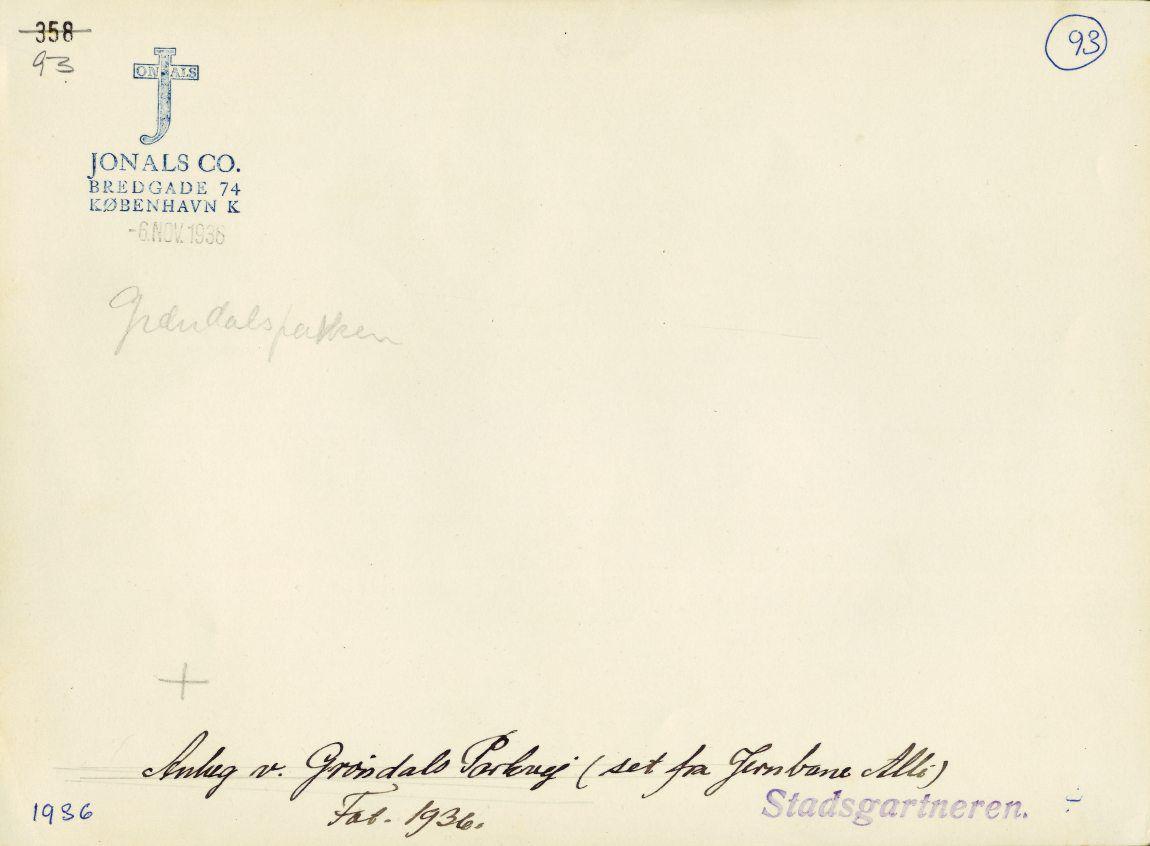 358
93
93
JONALS
JONALS CO.
BREDGADE 74
KØBENHAVN K
-6.NOV.1936
Grøndalsparken
+
Anlæg v. Grøndals Parkvej (set fra Jernbane Allé)
Fot. 1936.
1936
Stadsgartneren.